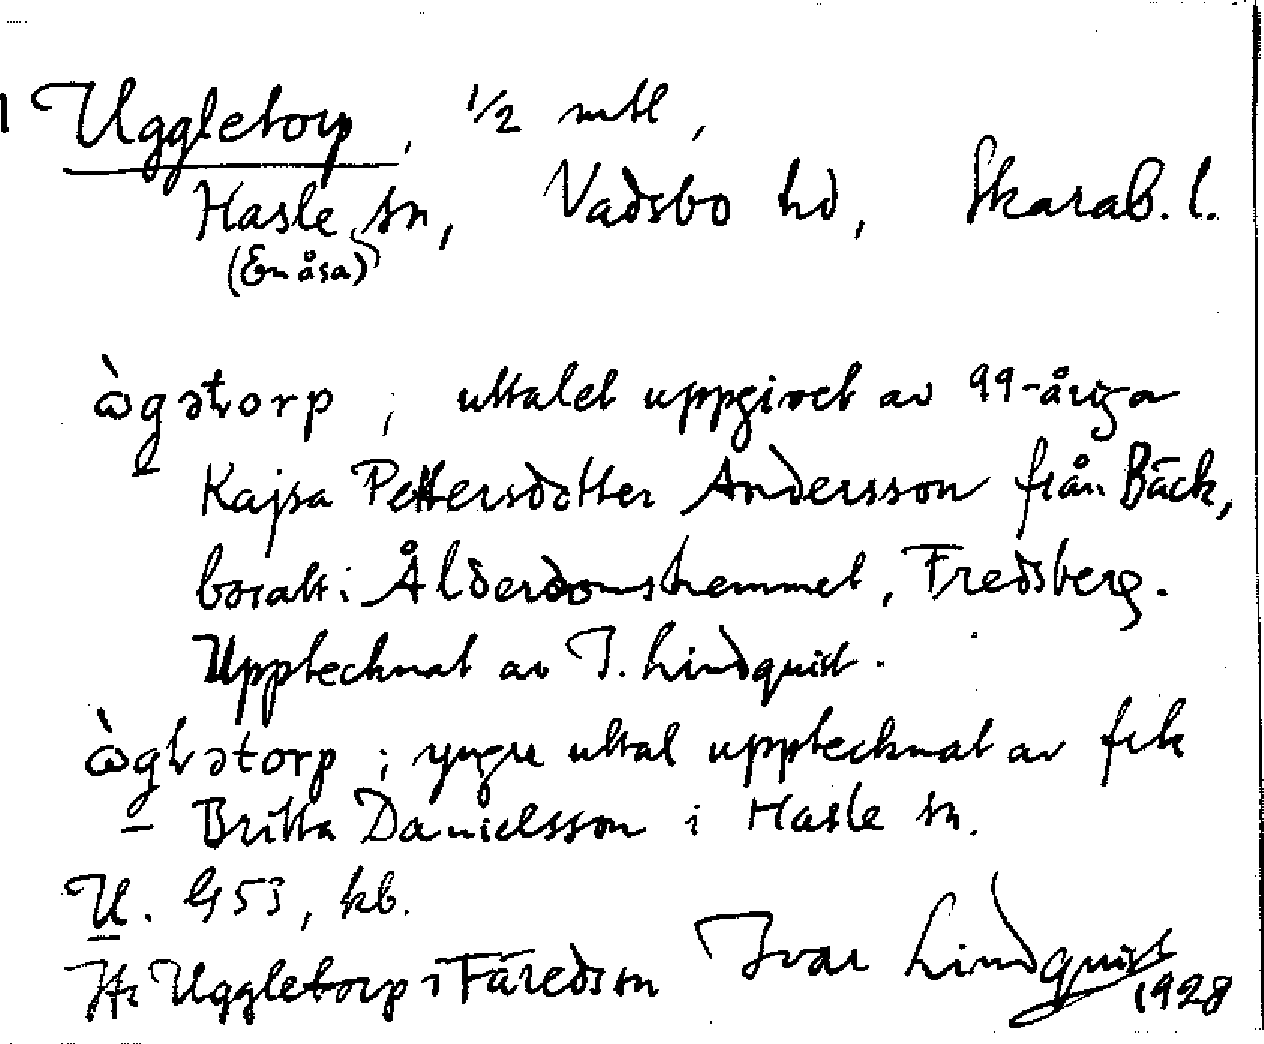 Uggletorp, 1/2 mtl,
Hasle sn, Vadsbo hd, Skarab. l.
(Enåsa)
ὼgətorp; uttalet uppgivet av 99-åriga
Kajsa Pettersdotter Andersson från Bäck,
bosatt i Ålderdomshemmet, Fredsberg.
Upptecknat av I. Lindquist.
ὼglətorp; yngre uttal upptecknat av frk
Britta Danielsson i Hasle sn.
U. G 53, kb.
Jfr Uggletorp i Färeds sn Ivar Lindquist
1928